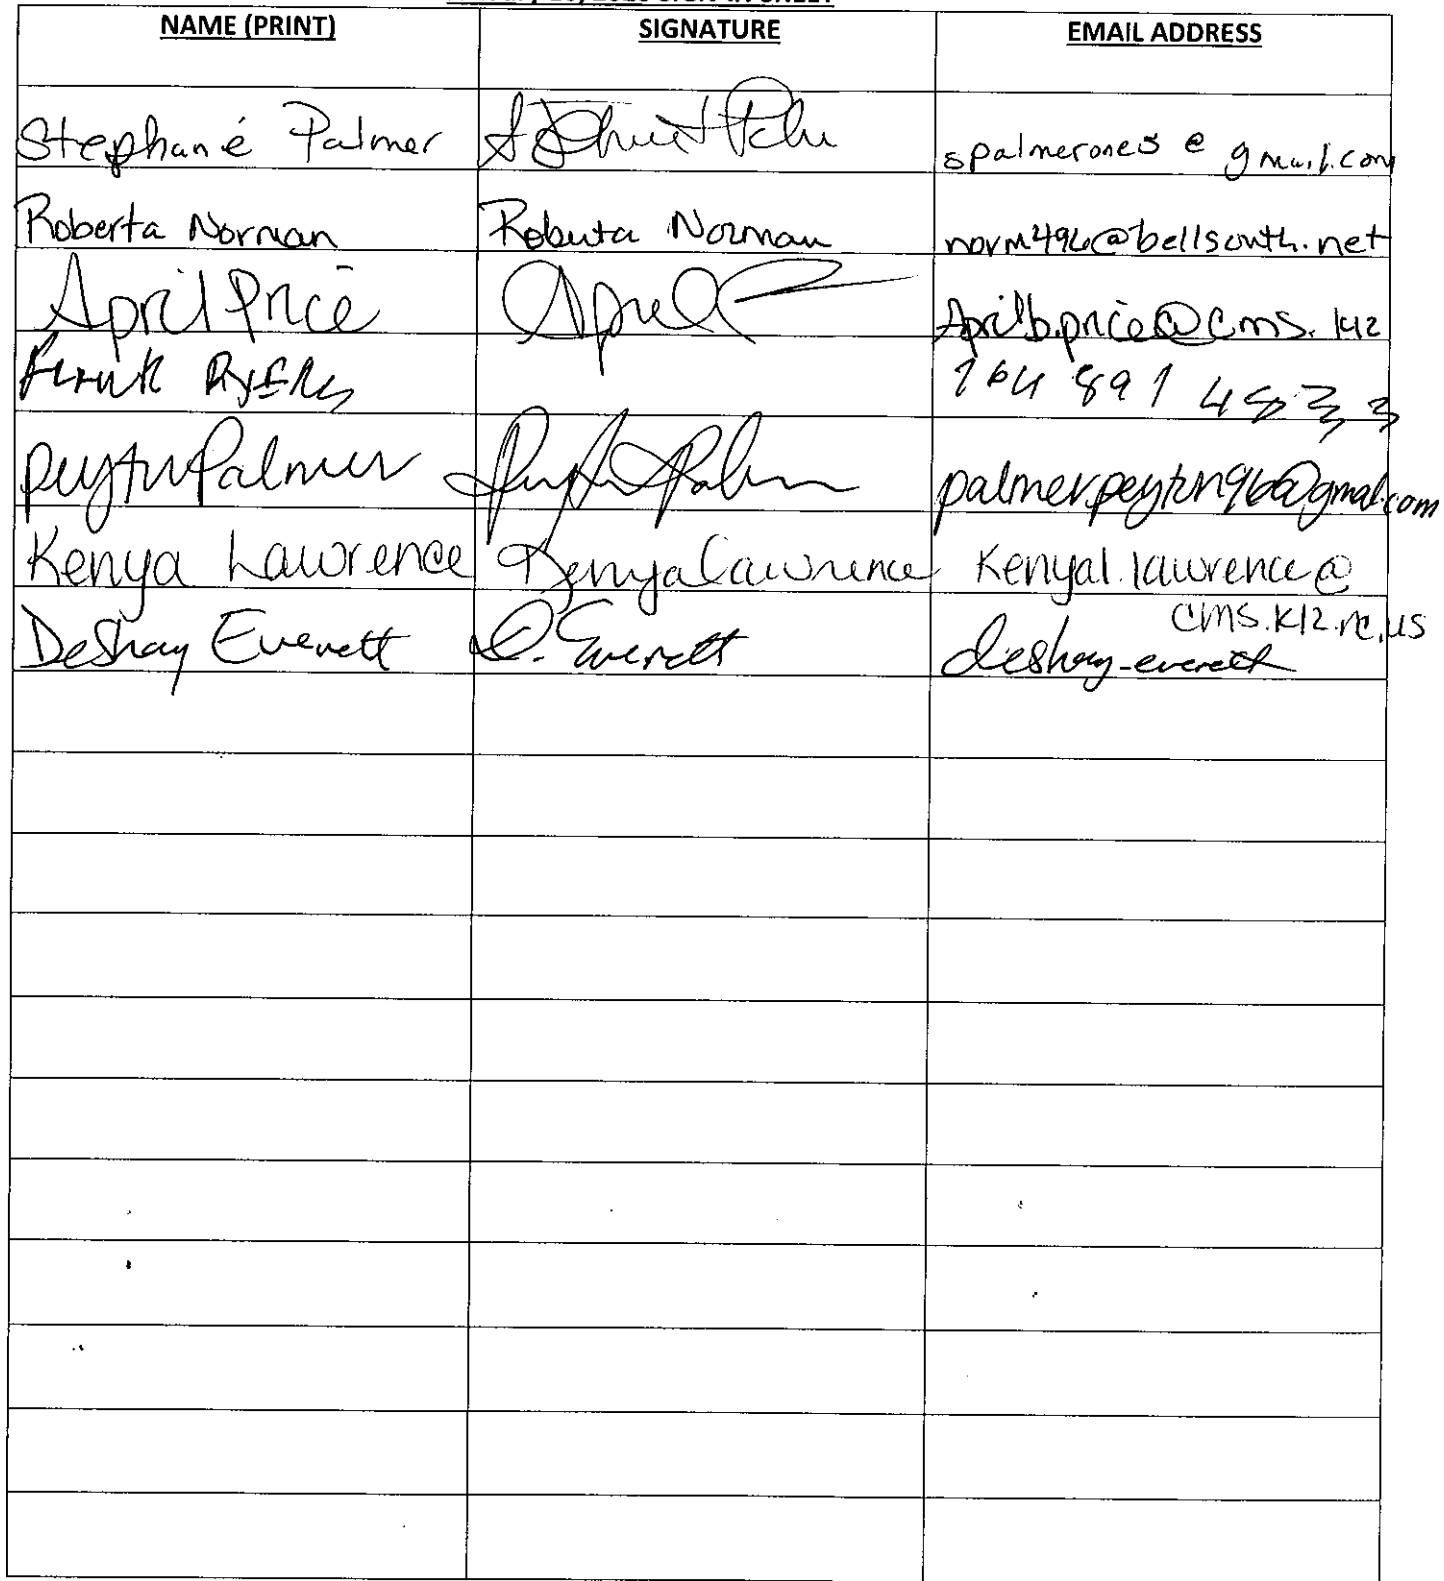 SIGN-IN SHEET
NAME (PRINT) SIGNATURE EMAIL ADDRESS
Stephanie Palmer spalmerones@gmail.com
Roberta Norman Roberta Norman norm496@bellsouth.net
April Price April Aprilb.price@cms.k12
Frank
Peyton Palmer Peyton Palmer palmer.peyton96@gmail.com
Kenya Lawrence Kenya Lawrence Kenyal.lawrence@
cms.k12.nc.us
DeShay Everett D. Everett deshay-everett